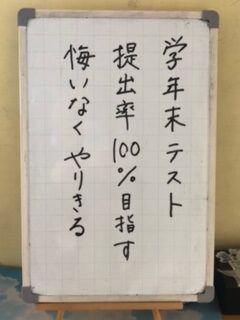 学年末テスト
提出率100%目指す
悔いなくやりきる